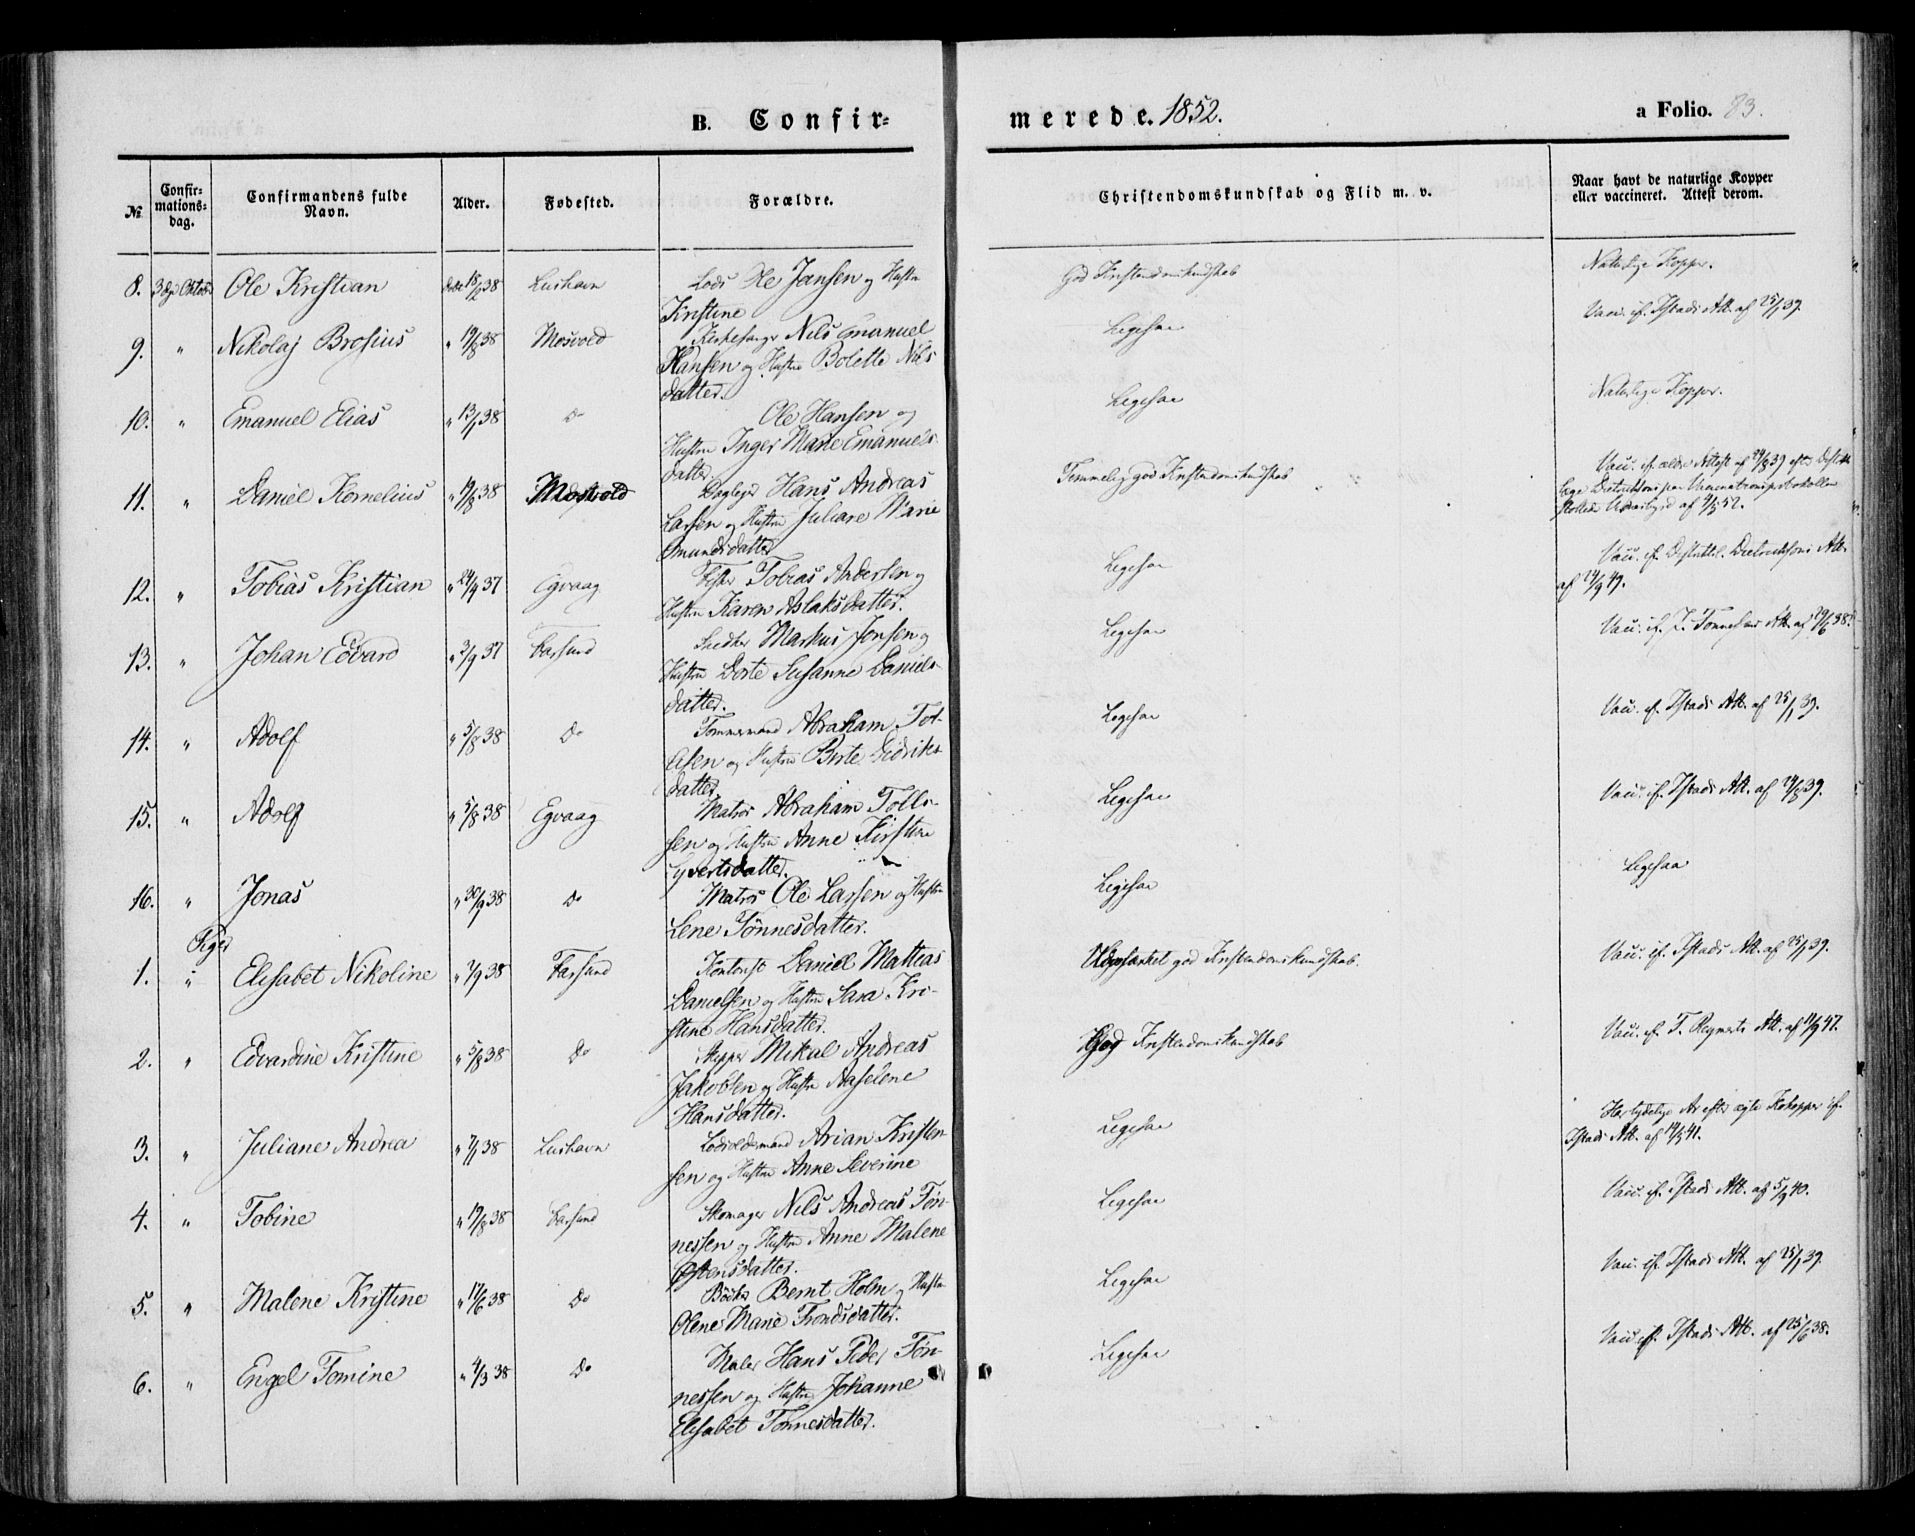 B. Confir-
merede. 1852.
a Folio. 83.
No
Confir-
mations-
dag.
Confirmandens fulde
Navn.
Alder.
Fødested.
Forældre.
Christendomskundskab og Flid m. v.
Naar havt de naturlige Kopper
eller vaccineret. Attest derom.
8. 3die Oktober Ole Kristian 38 Lushavn Lods Ole Jansen og Hustru
Kristine
God Kristendomskundskab
Naturlige Kopper.
9. " Nikolaj Brosius " 19/8 38 Mosvold Kirkesanger Nils Emanuel
Hansen og Hustru Bolette Nils
datter.
Ligesaa
Vacc. if. Istads Att. af 25/1 39.
10. " Emanuel Elias " 13/1 38 Do Ole Hansen og
Hustru Inger Marie Emanuels-
datter.
Ligesaa
Naturlige Kopper.
11. " Daniel Kornelius " 19/8 38 Mosvold Daglejer Hans Andreas
Larsen og Hustru Juliane Marie
Omundsdatter
Temmelig god Kristendomskundskab
Vacc. if. ældre Attest af 24/8 39 efter Distrikts
læge
af 9/5 52.
12. " Tobias Kristian " 24/9 37 Egvaag Tobias Andersen og
Hustru Karen Aslaksdatter.
Ligesaa
Vacc. if. Att.
af 24/9 49.
13. " Johan Edvard " 3/9 37 Farsund Snedker Markus Jonsen og
Hustru Dorte Susanne Daniels-
datter.
Ligesaa
Vacc. if. J. Tønnesens Att. af 29/6 38.
14. " Adolf " 5/8 38 Do Tømmermand Abraham Tol-
lefsen og Hustru Birte Didriks
datter
Ligesaa
Vacc. if. Istads Att. af 25/1 39.
15. " Adolf " 5/8 38 Egvaag Matros Abraham Tolle-
sen og Hustru Anne Kirstine
Syvertsdatter.
Ligesaa
Vacc. if. Istads Att. af 24/8 39.
16. " Jonas " 30/9 38 Do Matros Ole Larsen og Hustru
Lene Tønnesdatter.
Ligesaa
Ligesaa
Piger
1. " Elisabet Nikoline " 7/9 38 Farsund Kontorist Daniel Mattias
Danielsen og Hustru Sara Kri-
stine Hansdatter.
Udmærket god Kristendomskundskab.
Vacc. if. Istads Att. af 25/1 39.
2. " Edvardine Kristine " 5/8 38 Do Skipper Mikal Andreas
Jakobsen og Hustru Aaselene
Hansdatter.
God Kristendomskundskab
Vacc. if. T. Reymerts Att. af 11/9 47.
3. " Juliane Andrea " 7/1 38 Lushavn Lodsoldermand Arian Kristen-
sen og Hustru Anne Severine
Ligesaa
Har tydelige Ar efter ægte Kokopper if.
Istads Att. af 14/9 41.
4. " Tobine " 19/8 38 Farsund Skomager Nils Andreas Tøn-
nessen og Hustru Anne Malene
Østensdatter.
Ligesaa
Vacc. if. Istads Att. af 5/9 40.
5. " Malene Kristine " 17/6 38 Do Bødker Bernt Holm og Hustru
Olene Marie Trondsdatter.
Ligesaa
Vacc. if. Istads Att. af 25/1 39.
6. " Engel Tomine " 4/3 38 Do Maler Hans Peder Tøn-
nessen og Hustru Johanne
Elisabet Tønnesdatter.
Ligesaa
Vacc. if. Istads Att. af 25/6 38.